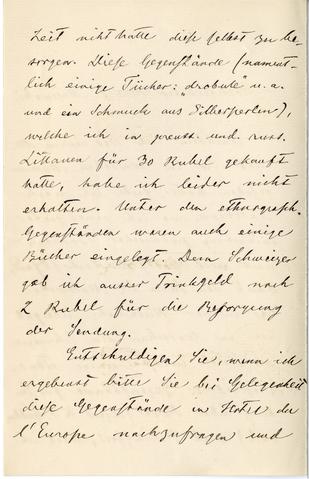 Zeit nicht hatte diese selbst zu be-
sorgen. Diese Gegenstände (nament-
lich einige Tücher: „drobule" u. a.
und ein Schmuck aus Silberperlen),
welche ich in preuss. und russ.
Littauen für 30 Rubel gekauft
hatte, habe ich leider nicht
erhalten. Unter den ethnograph.
Gegenständen waren auch einige
Bücher eingelegt. Dem Schweizer
gab ich ausser Trinkgeld noch
2 Rubel für die Besorgung
der Sendung.
Entschuldigen Sie, wenn ich
ergebenst bitte Sie bei Gelegenheit
diese Gegenstände in Hotel de
l'Europe nachzufragen und